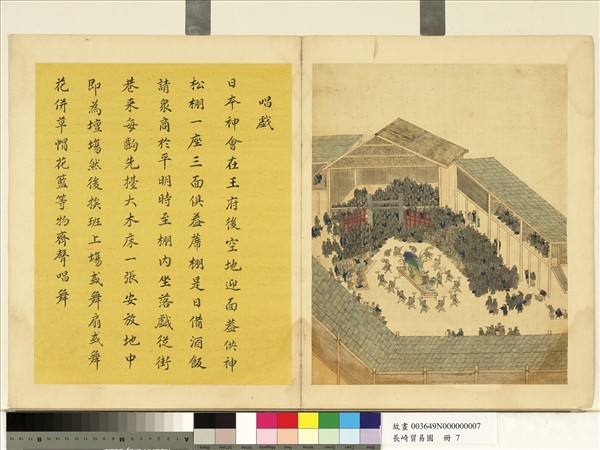 唱戲
日本神會在王府後空地迎面葢供神
松棚一座三面俱葢蓆棚是日備酒飯
請衆商於平明時至棚內坐落戲從街
巷來每齣先擡大木床一張安放地中
即為壇塲然後挨班上塲或舞扇或舞
花併草帽花籃等物齊聲唱舞
故畫 003649N000000007
長崎貿易圖 冊 7